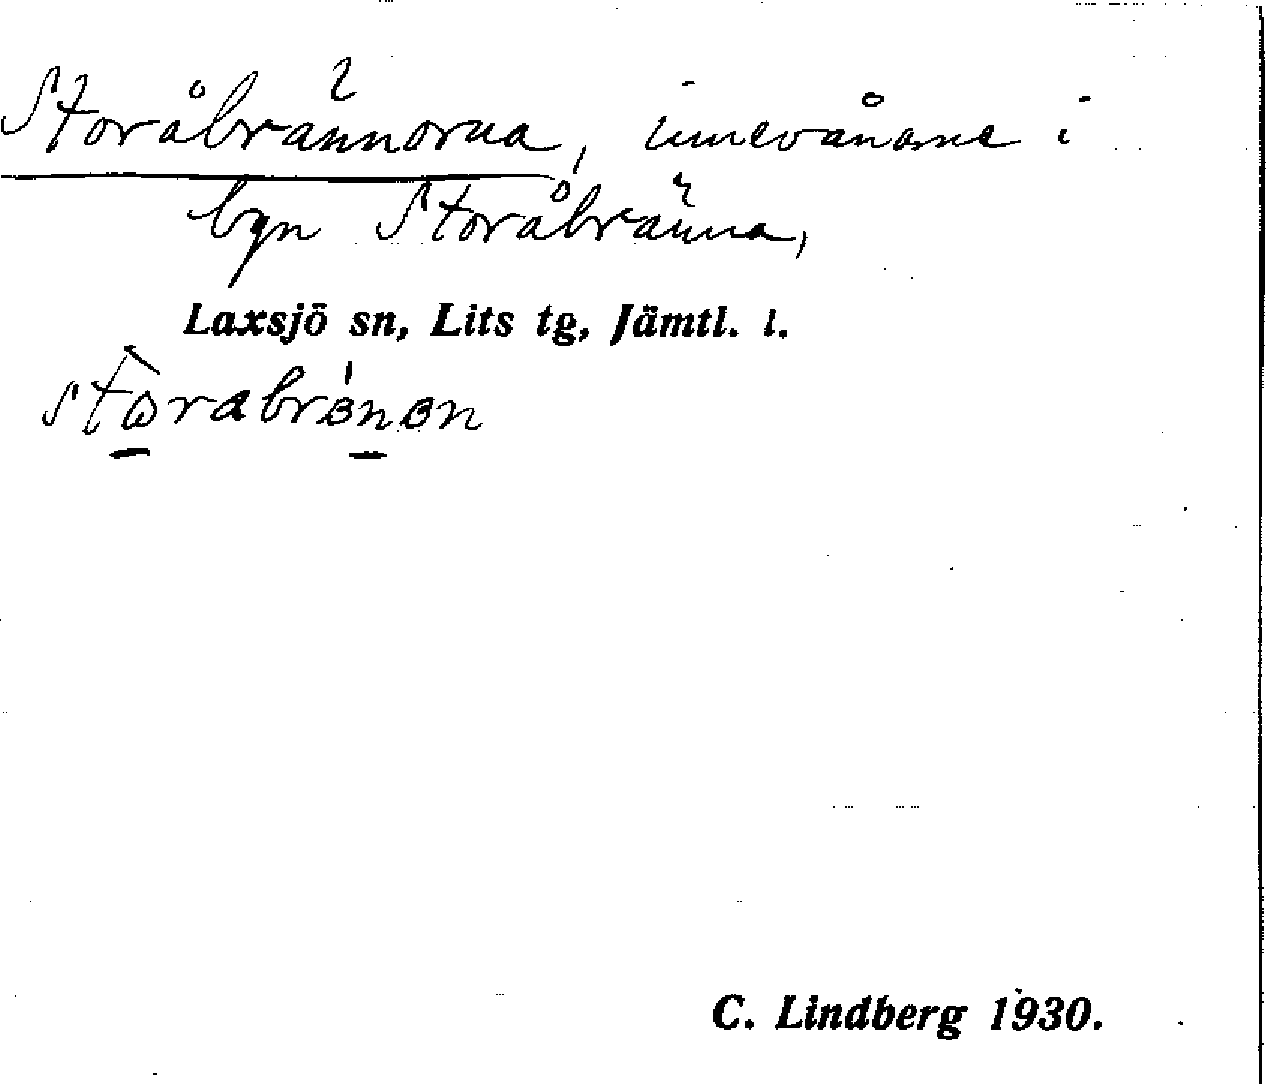 Storåbrännorna, innevånare i
byn Storåbränna,
Laxsjö sn, Lits tg, Jämtl. l.
C. Lindberg 1930.